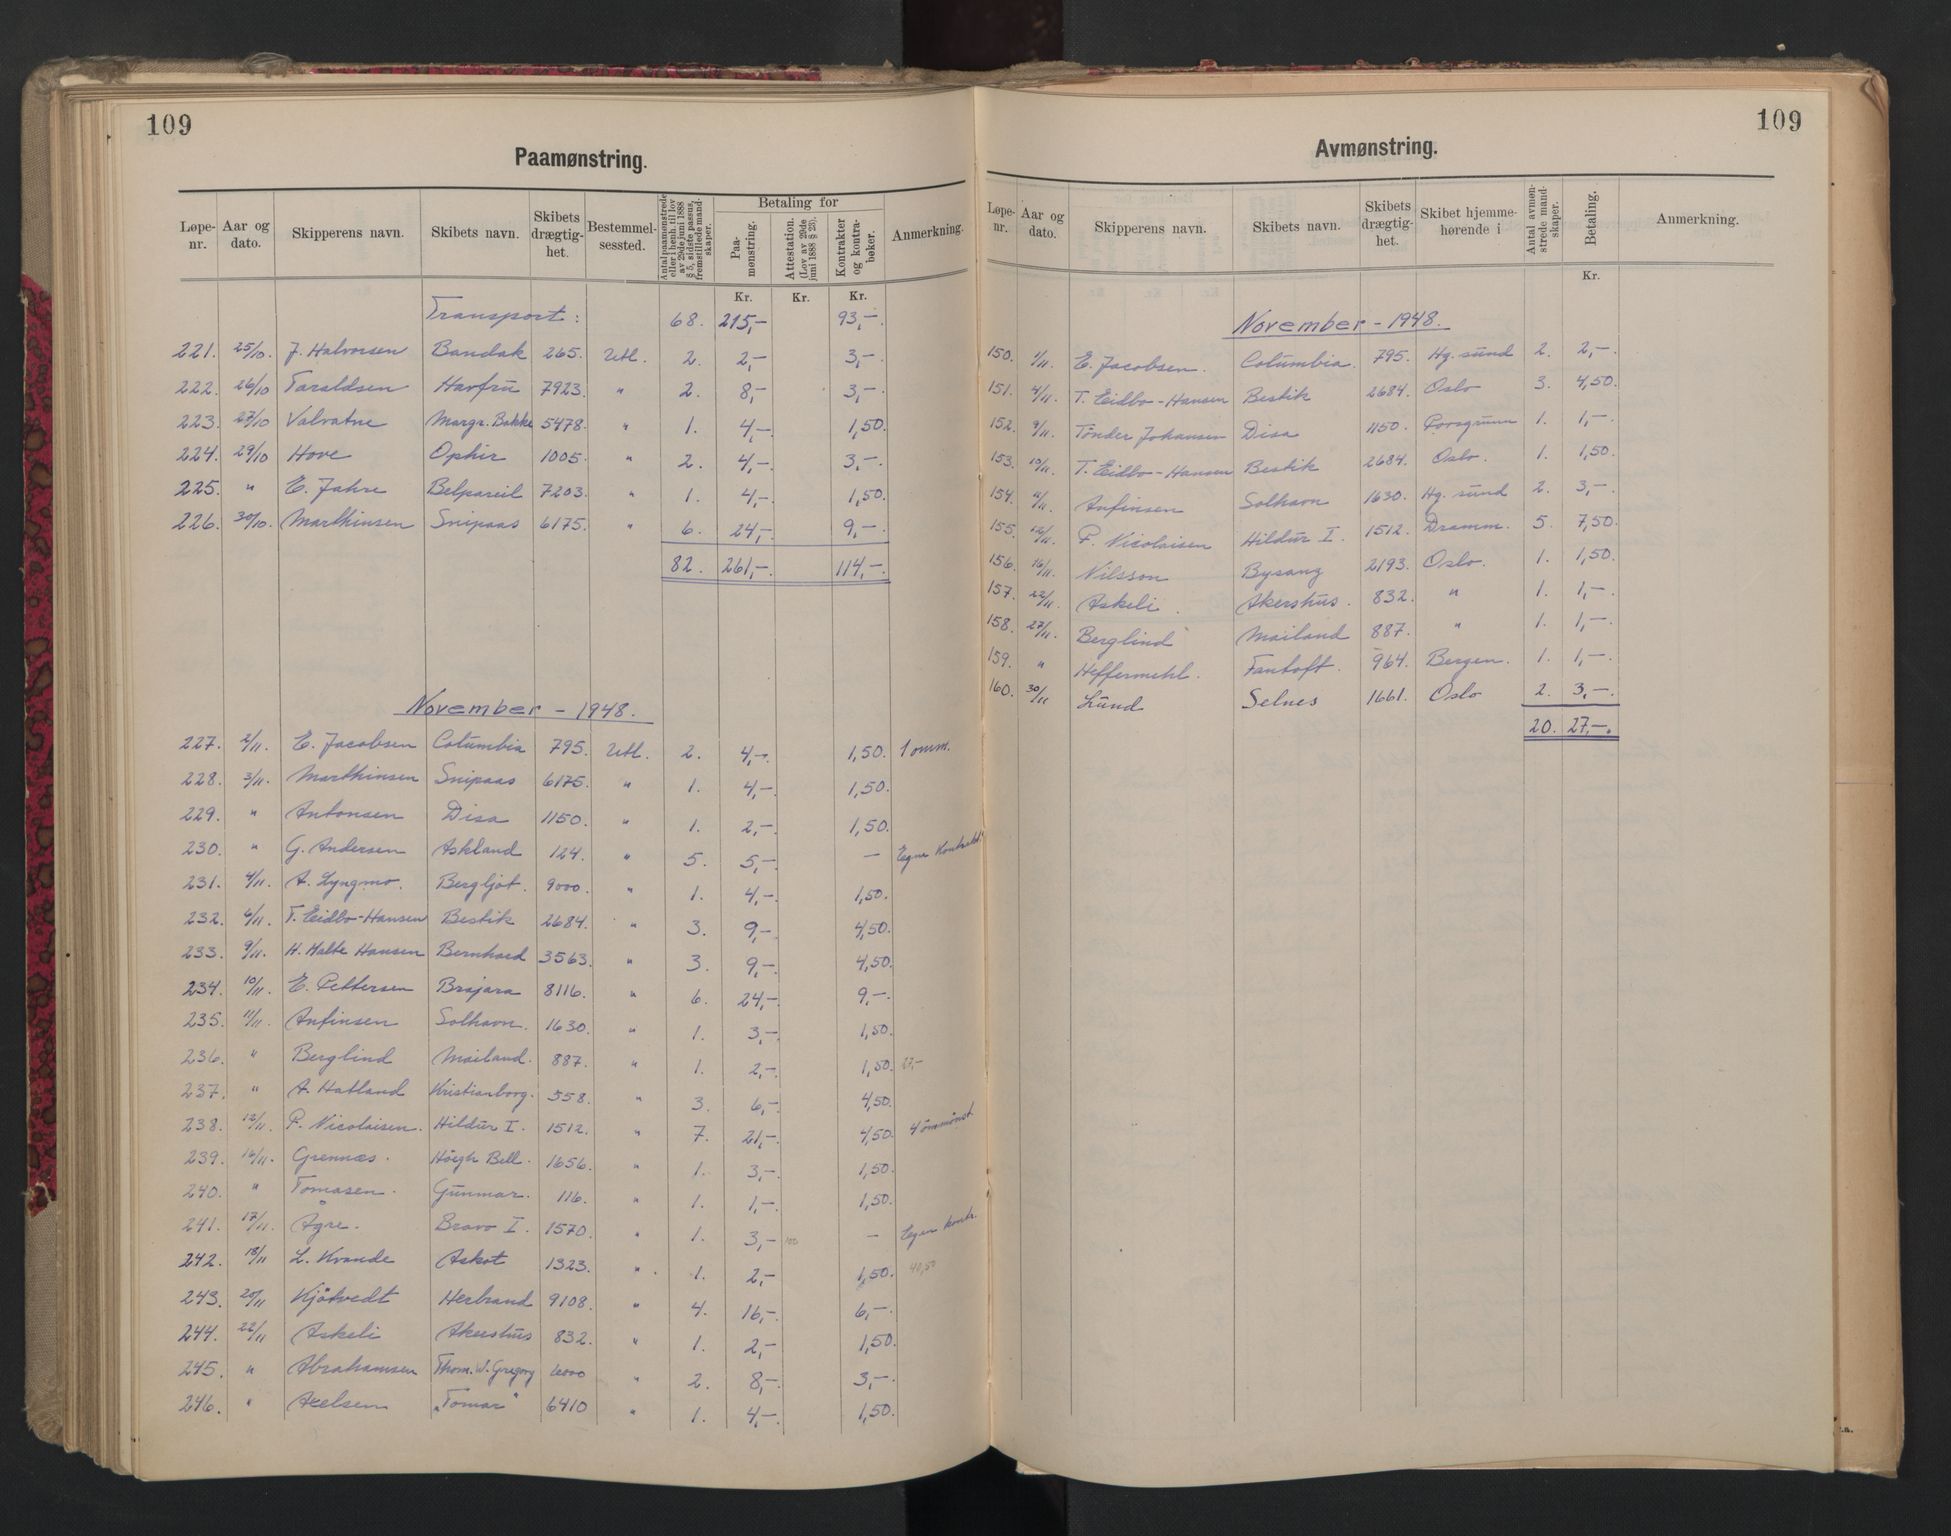 109
Paamønstring.
Løpe-nr. Aar og dato. Skipperens navn. Skibets navn. Skibets drægtig-het. Bestemmel-sessted. Antal paamønstrede eller i henh. til lov av 29de juni 1888 § 5, sidste passus, fremstillede mand-skaper. Betaling for Paa-mønstring. Attestation. (Lov av 29de juni 1888 § 23). Kontrakter og kontra-bøker. Anmerkning.
Kr. Kr. Kr.
Transport: 68. 215,- 93,-.
221. 25/10. J. Halvorsen Bandak 265. Utl. 2. 2,- 3,-.
222. 26/10 Taraldsen Havfrü 7923. " 2. 8,- 3,-.
223. 27/10 Valvatne Margr. Bakke 5478. " 1. 4,-. 1,50.
224. 29/10 Hove Ophir 1005. " 2. 4,-. 3,-.
225. " E. Jahre Belpareil 7203. " 1. 4,-. 1,50.
226. 30/10. Marthinsen Snipaas 6175. " 6. 24,-. 9,-.
82. 261,-. 114,-.
November - 1948.
227. 2/11. E. Jacobsen Columbia 795. Utl. 2. 4,-. 1,50. 1 omm.
228. 3/11. Marthinsen Snipaas 6175. " 1. 4,-. 1,50.
229. " Antonsen Disa 1150. " 1. 2,-. 1,50.
230. " G. Andersen Askland 124. " 5. 5,-. - Egne Kontrakt.
231. 4/11. A. Lyngmo. Bergljot. 9000. " 1. 4,-. 1,50.
232. 6/11. T. Eidbo-Hansen Bestik 2684. " 3. 9,-. 4,50.
233. 9/11. H. Malte Hansen Bernhard 3563. " 3. 9,-. 4,50.
234. 10/11. E. Pettersen Brajara 8116. " 6. 24,-. 9,-.
235. 11/11. Anfinsen Solhavn. 1630. " 1. 3,-. 1,50.
236. " Berglind Mailand. 887. " 1. 2,-. 1,50. 27,-
237. " A. Hatland Kristianborg. 558. " 3. 6,-. 4,50.
238. 12/11. P. Nicolaisen. Hildür I. 1512. " 7. 21,-. 4,50. 4 ommønst.
239. 16/11. Grennæs. Höegh Bell. 1656. " 1. 3,-. 1,50.
240. " Tomasen. Günmar. 116. " 1. 1,-. 1,50.
241. 17/11. Ågre. Bravo I. 1570. " 1. 3,-. 100 - Egen kontr.
242. 18/11 L. Kvande Askot 1323. " 1. 2,-. 1,50. 40,50
243. 20/11 Kjötvedt Herbrand 9108. " 4. 16,-. 6,-.
244. 22/11 Askeli Akershüs 832. " 1. 2,-. 1,50.
245. " Abrahamsen Thom. W. Gregory 6000 " 2. 8,-. 3,-.
246. " Axelsen "Tomar" 6410 " 1. 4,-. 1,50.
109
Avmønstring.
Løpe-nr. Aar og dato. Skipperens navn. Skibets navn. Skibets drægtig-het. Skibet hjemme-hørende i Antal avmøn-strede mand-skaper. Betaling. Anmerkning.
Kr.
November - 1948.
150. 1/11. E. Jacobsen. Columbia. 795. Hg. sünd 2. 2,-.
151. 4/11. T. Eidbo-Hansen Bestik 2684. Oslo 3. 4,50.
152. 9/11. Tönder Johansen Disa 1150. Porsgrunn 1. 1,-.
153. 10/11. T. Eidbo-Hansen Bestik 2684. Oslo. 1. 1,50.
154. 11/11. Anfinsen Solhavn 1630. Hg. sünd 2. 3,-.
155. 12/11. P. Nicolaisen Hildür I. 1512. Dramm. 5. 7,50.
156. 16/11. Nilsson Bysanz 2193. Oslo. 1. 1,50.
157. 22/11. Askeli. Akershüs. 832. " 1. 1,-.
158. 27/11. Berglind Mailand 887. " 1. 1,-.
159. " Heffermehl. Fantoft. 964. Bergen. 1. 1,-.
160. 30/11 Lünd Selnes 1661. Oslo 2. 3,-.
20. 27,-.